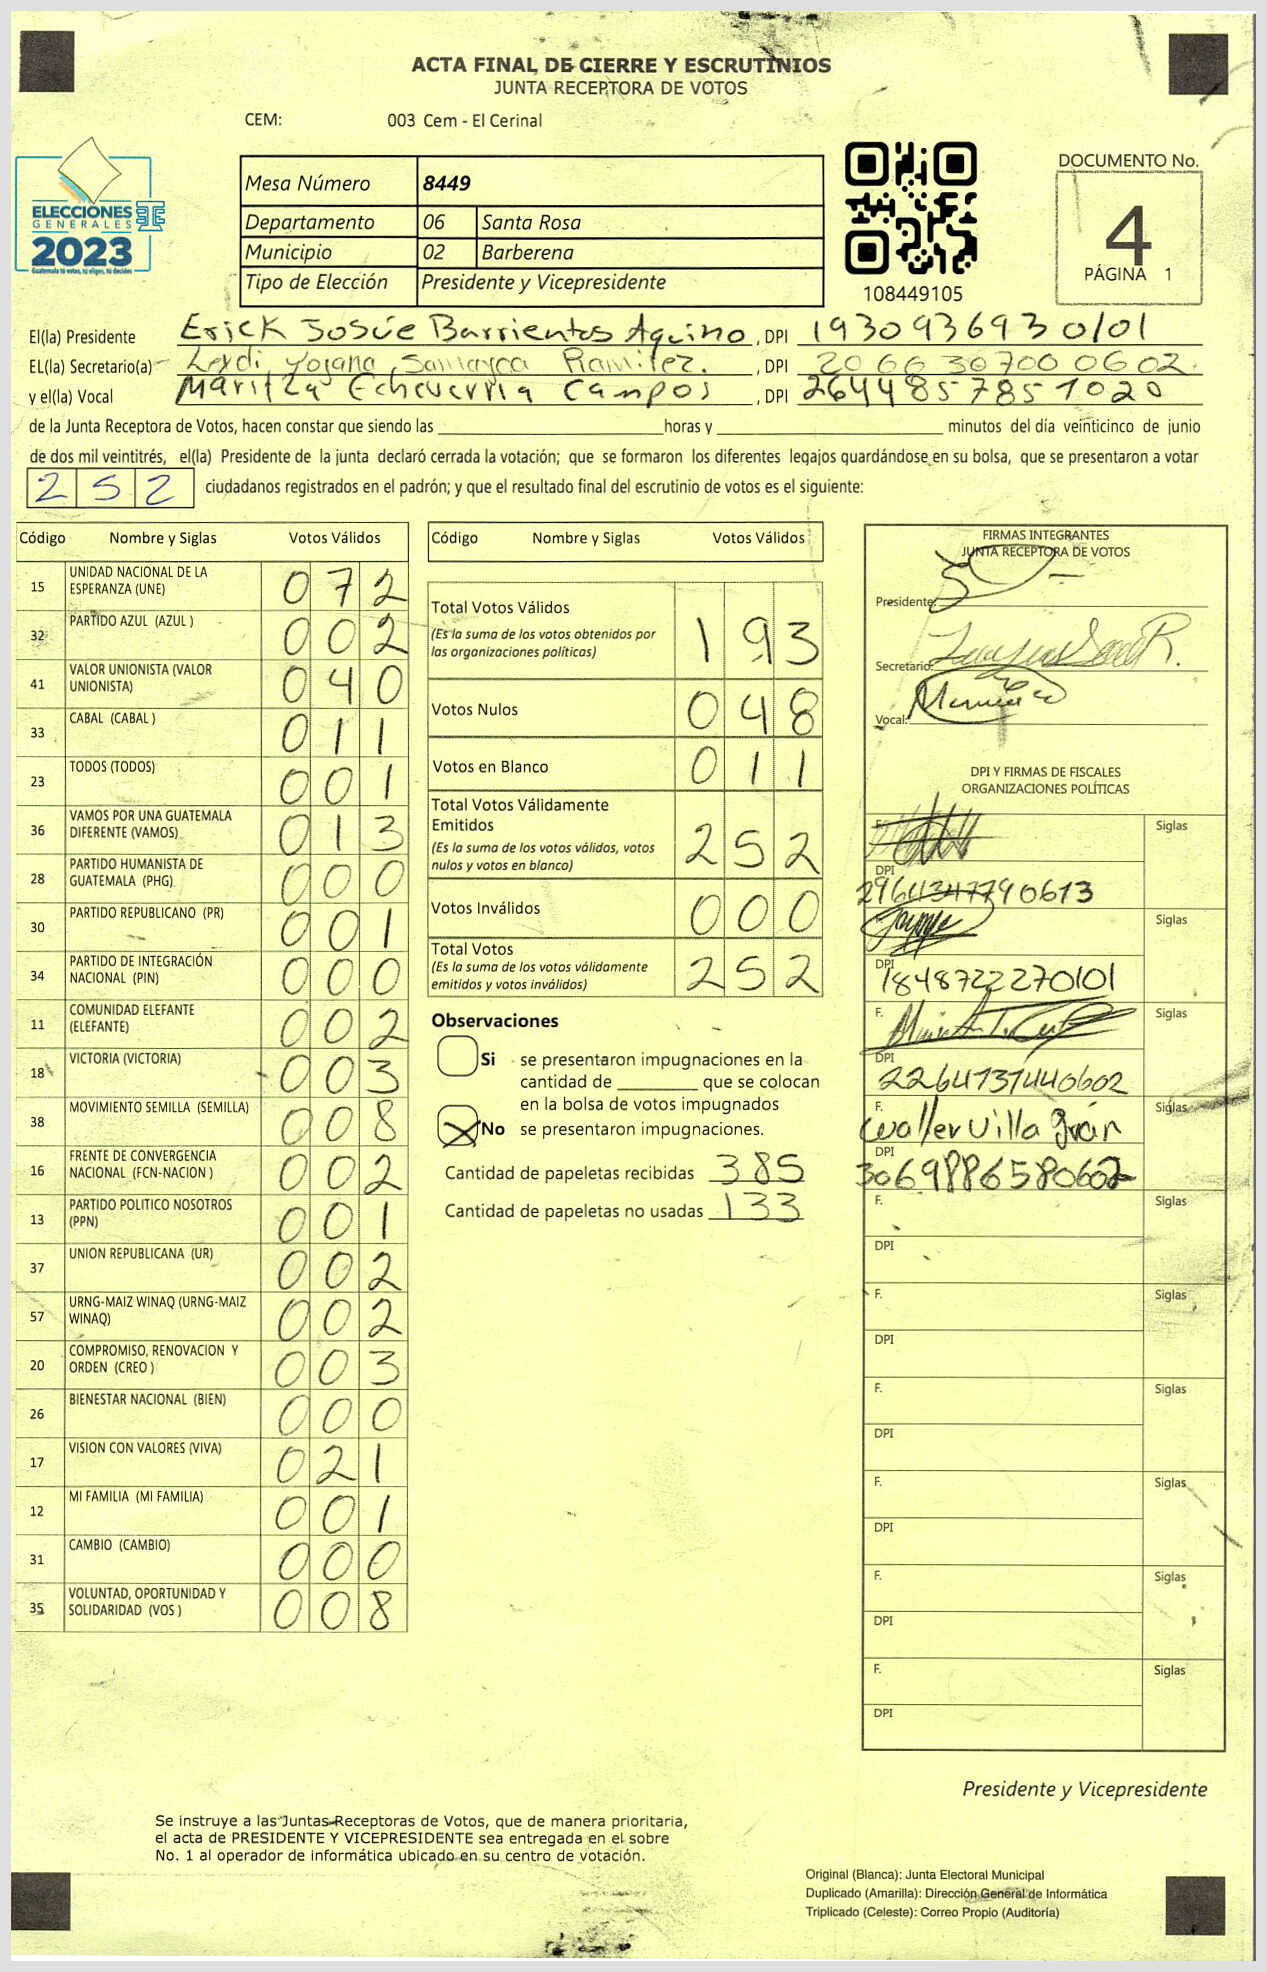 ACTA FINAL DE CIERRE Y ESCRUTINIOS
JUNTA RECEPTORA DE VOTOS
CEM: 003 Cem - El Cerinal
ELECCIONES
GENERALES
2023
Guatemala tú votas, tú eliges, tú decides
Mesa Número 8449
Departamento 06 Santa Rosa
Municipio 02 Barberena
Tipo de Elección Presidente y Vicepresidente
108449105
DOCUMENTO No.
4
PÁGINA 1
El(la) Presidente Erick Josúe Barrientos Aquino, DPI 1930936930101
EL(la) Secretario(a) Leydi Yojana Samayoa Ramirez. , DPI 2066307000602.
y el(la) Vocal Maritza Echeverria Campos , DPI 2644857851020
de la Junta Receptora de Votos, hacen constar que siendo las ____ horas y ____ minutos del día veinticinco de junio
de dos mil veintitrés, el(la) Presidente de la junta declaró cerrada la votación; que se formaron los diferentes legajos guardándose en su bolsa, que se presentaron a votar
252 ciudadanos registrados en el padrón; y que el resultado final del escrutinio de votos es el siguiente:
Código Nombre y Siglas Votos Válidos
15 UNIDAD NACIONAL DE LA ESPERANZA (UNE) 072
32 PARTIDO AZUL (AZUL ) 002
41 VALOR UNIONISTA (VALOR UNIONISTA) 040
33 CABAL (CABAL ) 011
23 TODOS (TODOS) 001
36 VAMOS POR UNA GUATEMALA DIFERENTE (VAMOS) 013
28 PARTIDO HUMANISTA DE GUATEMALA (PHG) 000
30 PARTIDO REPUBLICANO (PR) 001
34 PARTIDO DE INTEGRACIÓN NACIONAL (PIN) 000
11 COMUNIDAD ELEFANTE (ELEFANTE) 002
18 VICTORIA (VICTORIA) 003
38 MOVIMIENTO SEMILLA (SEMILLA) 008
16 FRENTE DE CONVERGENCIA NACIONAL (FCN-NACION ) 002
13 PARTIDO POLITICO NOSOTROS (PPN) 001
37 UNION REPUBLICANA (UR) 002
57 URNG-MAIZ WINAQ (URNG-MAIZ WINAQ) 002
20 COMPROMISO, RENOVACION Y ORDEN (CREO ) 003
26 BIENESTAR NACIONAL (BIEN) 000
17 VISION CON VALORES (VIVA) 021
12 MI FAMILIA (MI FAMILIA) 001
31 CAMBIO (CAMBIO) 000
35 VOLUNTAD, OPORTUNIDAD Y SOLIDARIDAD (VOS ) 008
Código Nombre y Siglas Votos Válidos
Total Votos Válidos 193
(Es la suma de los votos obtenidos por
las organizaciones políticas)
Votos Nulos 048
Votos en Blanco 011
Total Votos Válidamente
Emitidos 252
(Es la suma de los votos válidos, votos
nulos y votos en blanco)
Votos Inválidos 000
Total Votos 252
(Es la suma de los votos válidamente
emitidos y votos inválidos)
Observaciones
Si se presentaron impugnaciones en la
cantidad de ____ que se colocan
en la bolsa de votos impugnados
X No se presentaron impugnaciones.
Cantidad de papeletas recibidas 385
Cantidad de papeletas no usadas 133
FIRMAS INTEGRANTES
JUNTA RECEPTORA DE VOTOS
Presidente:
Secretario:
Vocal:
DPI Y FIRMAS DE FISCALES
ORGANIZACIONES POLÍTICAS
F. Siglas
DPI 2964347790613
F. Siglas
DPI 1848722270101
F. Siglas
DPI 2264737440602
F. Walter Villa Siglas
DPI 3069886580602
F. Siglas
DPI
F. Siglas
DPI
F. Siglas
DPI
F. Siglas
DPI
F. Siglas
DPI
F. Siglas
DPI
Presidente y Vicepresidente
Se instruye a las Juntas Receptoras de Votos, que de manera prioritaria,
el acta de PRESIDENTE Y VICEPRESIDENTE sea entregada en el sobre
No. 1 al operador de informática ubicado en su centro de votación.
Original (Blanca): Junta Electoral Municipal
Duplicado (Amarilla): Dirección General de Informática
Triplicado (Celeste): Correo Propio (Auditoría)